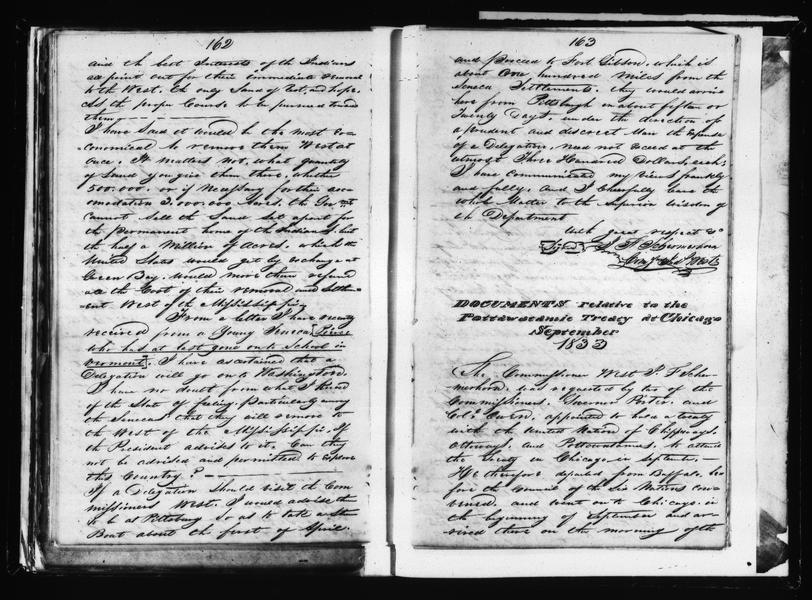 162
and the best Interests of the Indians
as point out for their immediate removal
to the West. the only Land of Rest, and hope.
As the proper Course to be pursued toward
them,
I have said it would be the most Eco-
nomical to remove them West at
once. It matters not, what quantity
of Land you give them there, whether
500,000. or if Necessary for their acco-
modation 2,000,000 Acres. the Govmt
cannot sell the Land set apart for
the permanent home of the Indians, but
the half a Million of Acres, which the
United States would get by exchange at
Green Bay. would more than refund
all the Cost of their removal and settle-
ment West of the Mississippi
From a letter I have recently
received from a Young Seneca (Pierce
who has at last gone on to School in
Vermont). I have ascertained that a
Delegation will go on to Washington.
I have no doubt from what I know
of the State of feeling, particularly among
the Senecas that they will remove to
the West of the Mississippi. If
the President advises to it. Can they
not be advised and permitted to Explore
this Country?
If a Delegation should visit the Com
missioners West. I would advise them
to be at Pittsburg so as to take a Stm
Boat about the first of April
163
and proceed to Fort Gibson, which is
about One hundred Miles from the
Seneca Settlements. they would arrive
here from Pittsburgh in about fifteen or
Twenty Days. under the direction of
a prudent and discreet Man the Expense
of a Delegation, need not exceed at the
utmost Three Hundred Dollars, each;
I have communicated my views frankly
and fully. and I cheerfully leave the
whole Matter to the Superior Wisdom of
the Department
With great respect &c
Signed J. F. Schermerhorn
Comr Ind. West
DOCUMENTS relative to the
Pottawatamie Treaty at Chicago
September
1833
The Commissioner West J. F. Scher-
merhorn. was requested by two of the
Commissioners. Governor Porter. and
Colo Owen. appointed to hold a treaty
with the United Nation of Chippeways.
Ottoways. and Pottowatamies. to attend
the treaty in Chicago in Septemr.
He therefore departed from Buffalo, be
fore the Council of the Six Nations con-
vened. and went on to Chicago. in
the beginning of September and ar-
rived there on the morning of the